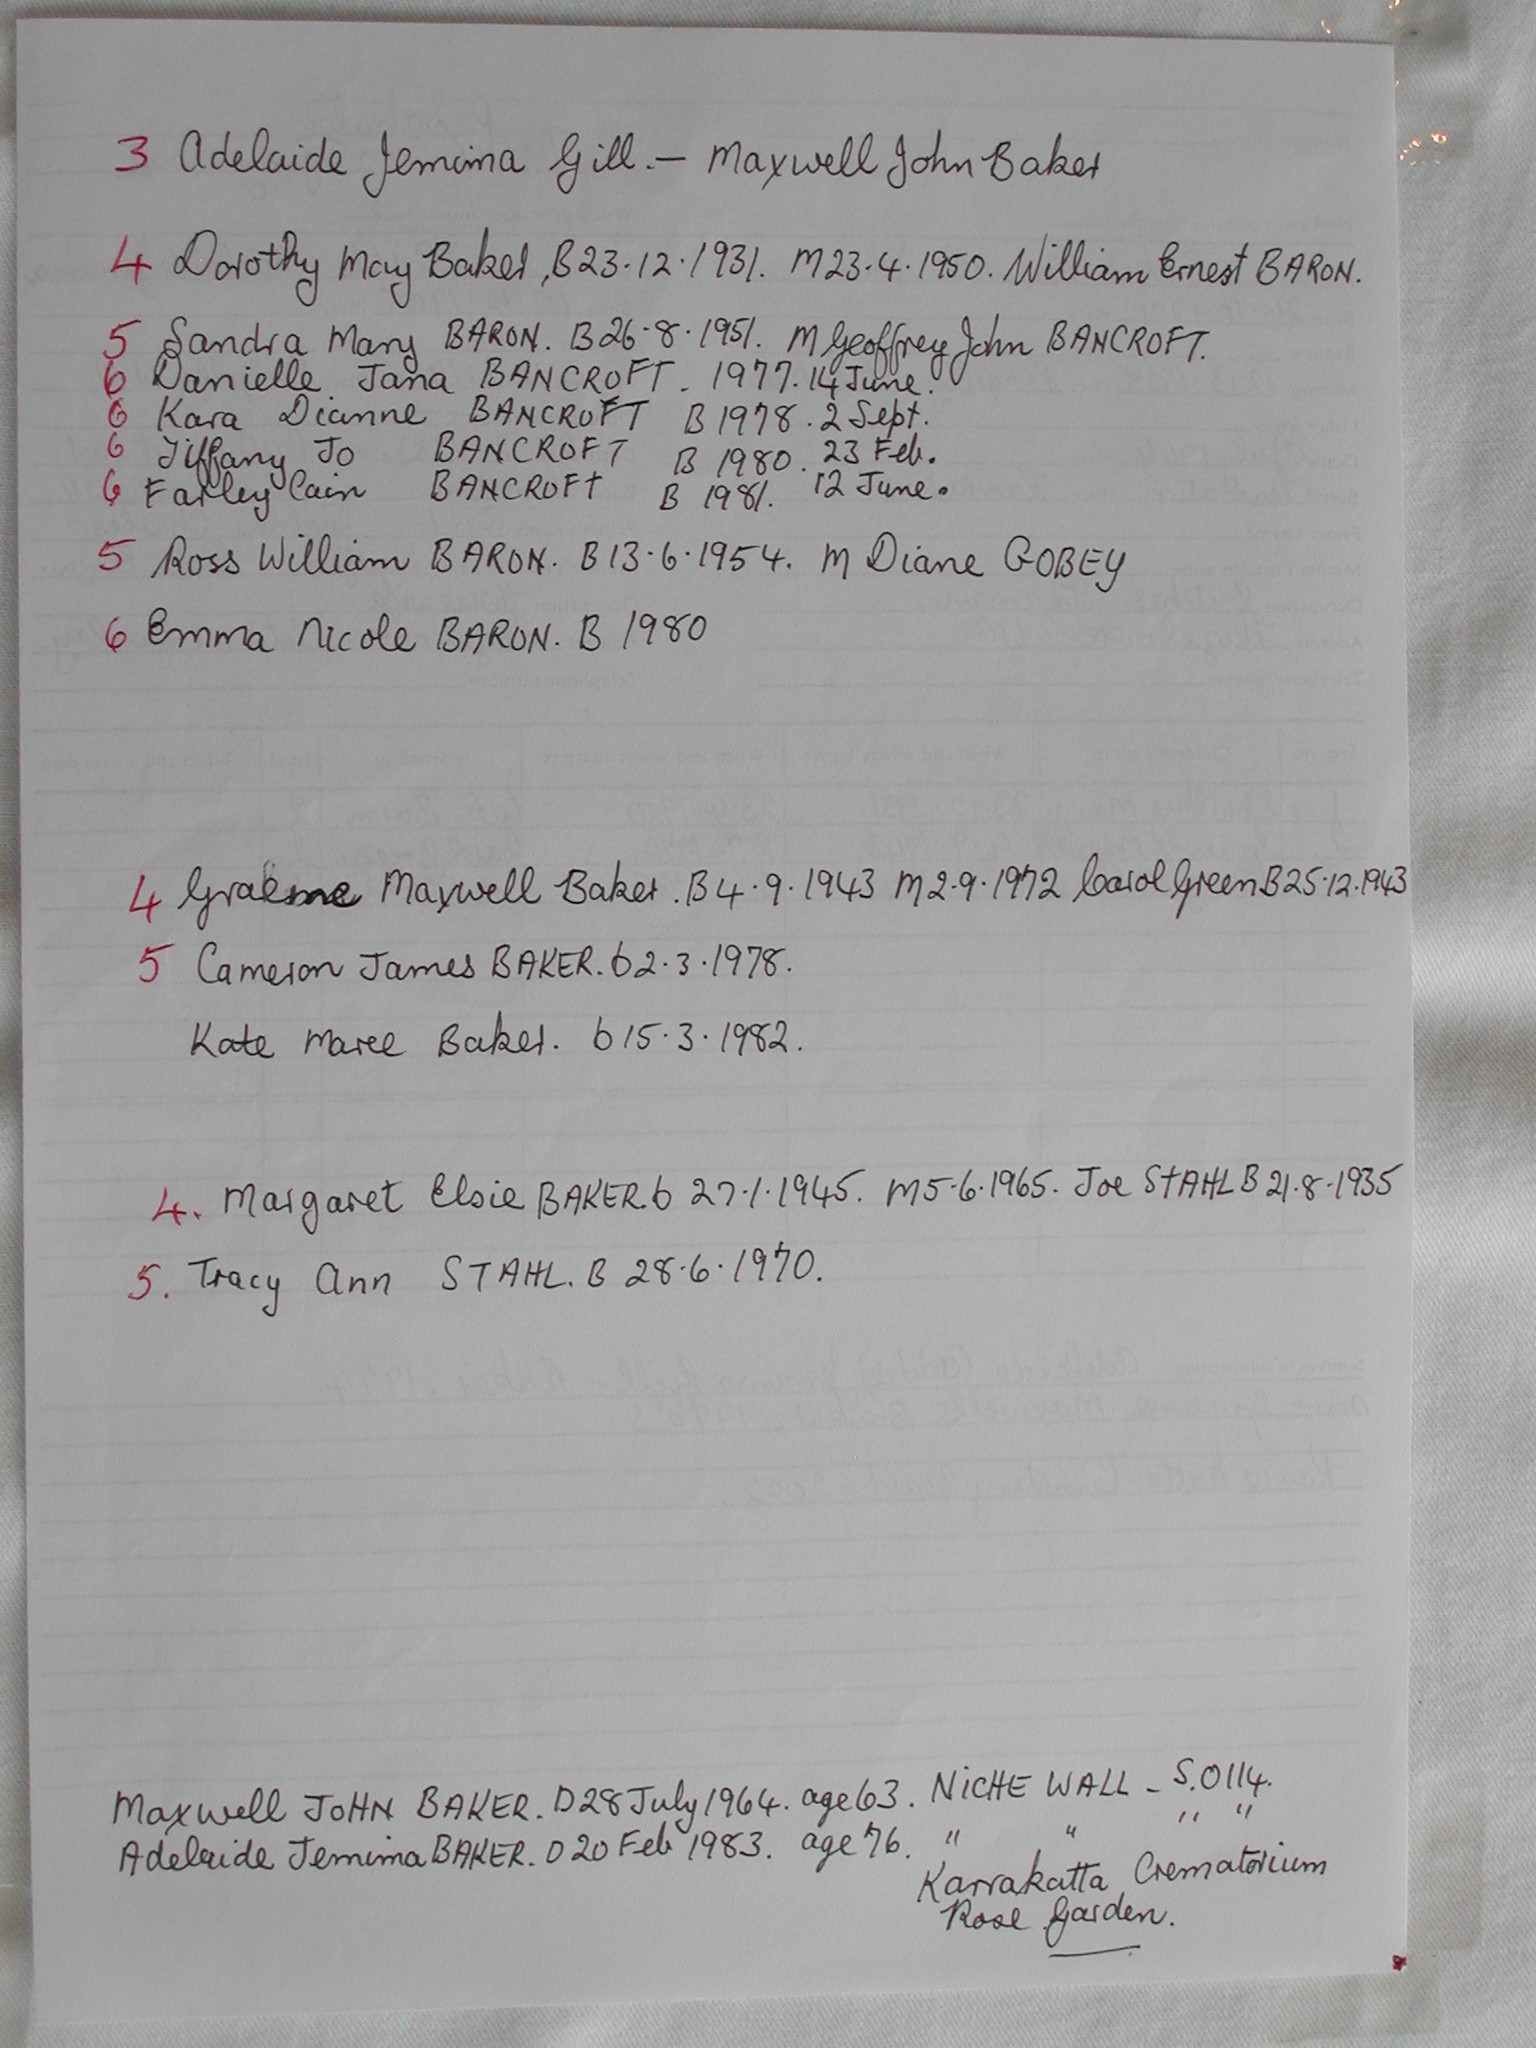 3 Adelaide Jemima Gill. — Maxwell John Baker
4 Dorothy May Baker, B 23·12·1931. M 23·4·1950. William Ernest BARON.
5 Sandra Mary BARON. B 26·8·1951. M Geoffrey John BANCROFT.
6 Danielle Jana BANCROFT. 1977. 14 June.
6 Kara Dianne BANCROFT B 1978. 2 Sept.
6 Tiffany Jo BANCROFT B 1980. 23 Feb.
6 Farley Cain BANCROFT B 1981. 12 June.
5 Ross William BARON. B 13·6·1954. M Diane GOBEY
6 Emma Nicole BARON. B 1980
4 Graeme Maxwell Baker. B 4·9·1943 M 2·9·1972 Carol Green B 25·12·1943
5 Cameron James BAKER. b 2·3·1978.
Kate Maree Baker. b 15·3·1982.
4. Margaret Elsie BAKER. b 27·1·1945. M 5·6·1965. Joe STAHL B 21·8·1935
5. Tracy Ann STAHL. B 28·6·1970.
Maxwell JOHN BAKER. D 28 July 1964. age 63. NICHE WALL - S.0114.
Adelaide Jemima BAKER. D 20 Feb 1983. age 76. " " " "
Karrakatta Crematorium
Rose Garden.